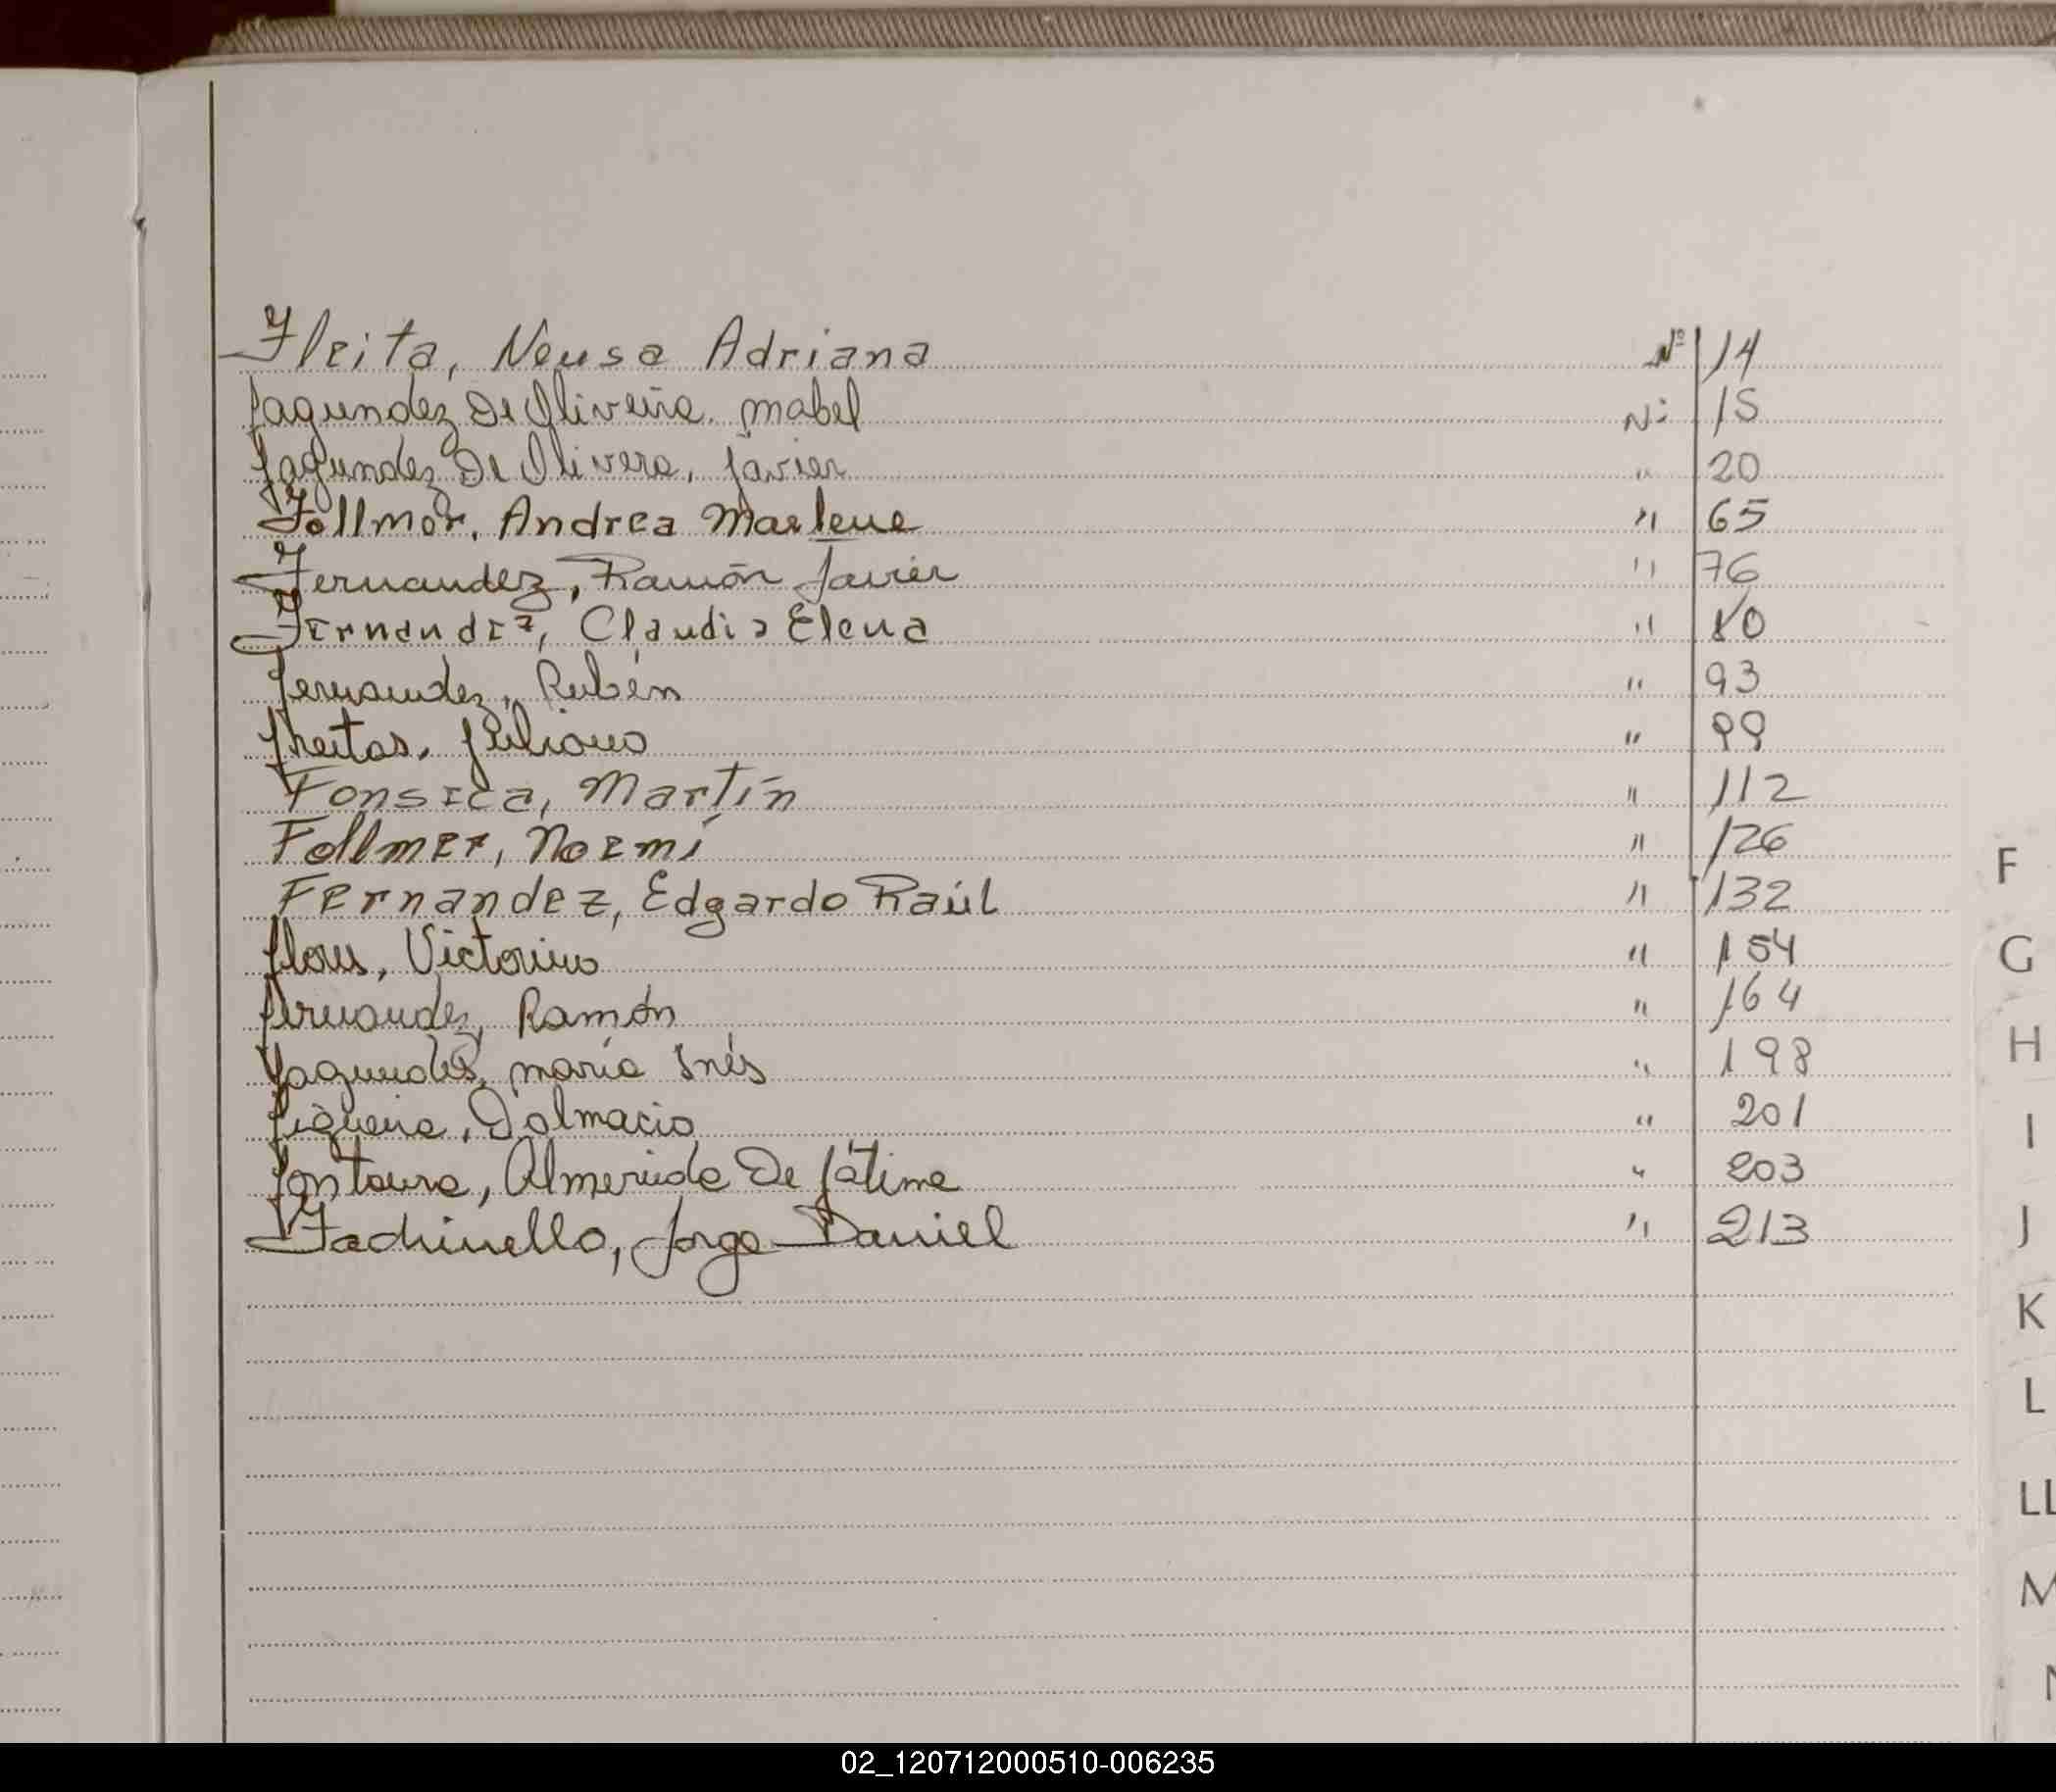 Fleita, Neusa Adriana Nº 14
Fagundez De Oliveira, Mabel Nº 15
Fagundez De Olivera, Javier " 20
Follmer, Andrea Marlene " 65
Fernandez, Ramón Javier " 76
Fernandez, Claudia Elena " 80
Fernandez, Rubén " 93
Freitas, Juliano " 99
Fonseca, Martín " 112
Follmer, Noemí " 126
Fernandez, Edgardo Raúl " 132
Flores, Victorino " 154
Fernandez, Ramón " 164
Fagundes, María Inés " 198
Figueira, Dalmacio " 201
Fontoura, Almerinda De Fátima " 203
Fachinello, Jorge Daniel " 213
F
G
H
I
J
K
L
LL
M
N
02_120712000510-006235